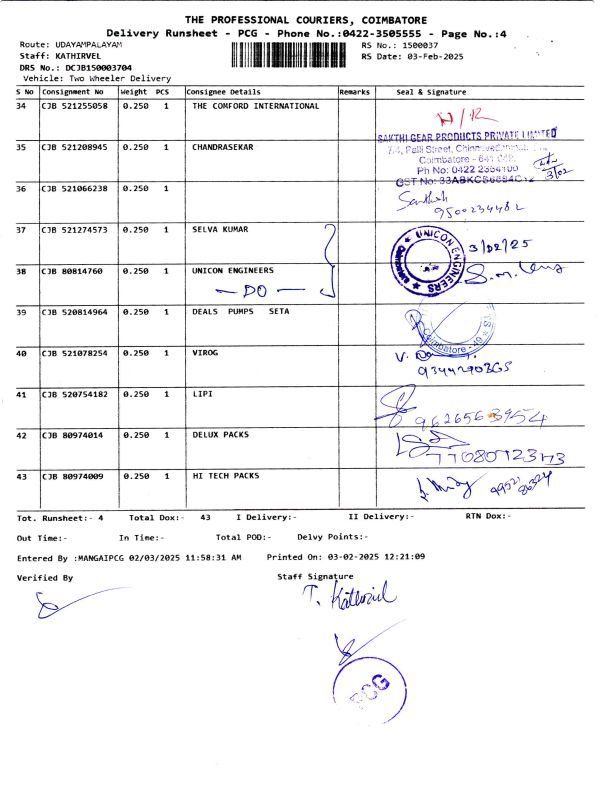 THE PROFESSIONAL COURIERS, COIMBATORE
Delivery Runsheet - PCG - Phone No.:0422-3505555 - Page No.:4
Route: UDAYAMPALAYAM RS No.: 1500037
Staff: KATHIRVEL RS Date: 03-Feb-2025
DRS No.: DCJB150003704
Vehicle: Two Wheeler Delivery
S No Consignment No Weight PCS Consignee Details Remarks Seal & Signature
34 CJB 521255058 0.250 1 THE COMFORD INTERNATIONAL
N/R
SAKTHI GEAR PRODUCTS PRIVATE LIMITED
35 CJB 521208945 0.250 1 CHANDRASEKAR
Coimbatore - 641
Ph No: 0422
3/02
GST No:
36 CJB 521066238 0.250 1
Santhosh
9500234482
37 CJB 521274573 0.250 1 SELVA KUMAR
UNICON ENGINEERS
3/02/25
38 CJB 80814760 0.250 1 UNICON ENGINEERS
- DO -
39 CJB 520814964 0.250 1 DEALS PUMPS SETA
Coimbatore - 49
40 CJB 521078254 0.250 1 VIROG
41 CJB 520754182 0.250 1 LIPI
42 CJB 80974014 0.250 1 DELUX PACKS
43 CJB 80974009 0.250 1 HI TECH PACKS
Tot. Runsheet:- 4 Total Dox:- 43 I Delivery:- II Delivery:- RTN Dox:-
Out Time:- In Time:- Total POD:- Delvy Points:-
Entered By :MANGAIPCG 02/03/2025 11:58:31 AM Printed On: 03-02-2025 12:21:09
Verified By Staff Signature
T. Kathirvel
PCG